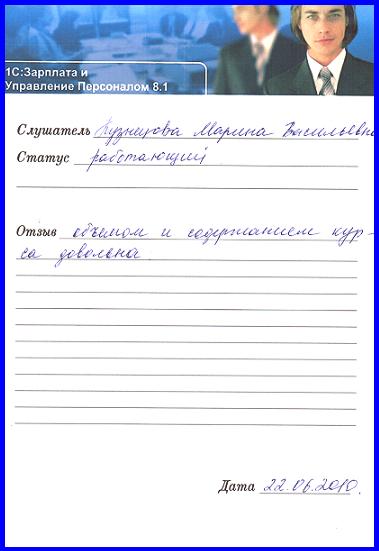 1С:Зарплата и
Управление Персоналом 8.1
Слушатель Кузнецова Марина Васильевна
Статус работающий
Отзыв объемом и содержанием кур-
са довольна.
Дата 22.06.2010.